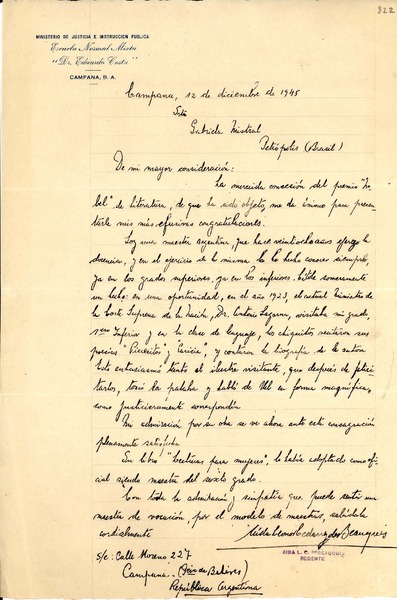 322
MINISTERIO DE JUSTICIA E INSTRUCCION PUBLICA
Escuela Normal Mixta
"Dr. Eduardo Costa"
CAMPANA, B. A.
Campana, 12 de diciembre de 1945
Srta
Gabriela Mistral
Petrópolis (Brasil)
De mi mayor consideración:
La merecida concesión del premio "No-
bel" de Literatura, de que ha sido objeto, me da ánimo para presen-
tarle mis más efusivas congratulaciones.
Soy una maestra argentina, que hace veintiocho años ejerzo la
docencia, y en el ejercicio de la misma la he hecho conocer siempre,
ya en los grados superiores, ya en los inferiores. Citole someramente
un hecho: en una oportunidad, en el año 1923, el actual Ministro de
la Corte Suprema de la Nación, Dr. Antonio Sagarna, visitaba mi grado,
1ero Inferior y en la clase de lenguaje, los chiquitos recitaron sus
poesías "Piececitos" y "Caricia", y contaron la biografía de la autora
Esto entusiasmó tanto al ilustre visitante, que después de felici-
tarlos, tomó la palabra y habló de Ud en forma magnífica,
como justicieramente correspondía.
Mi admiración por su obra se ve ahora ante esta consagración
plenamente satisfecha.
Su libro "Lecturas para mujeres", lo había adoptado como ofi-
cial siendo maestra del sexto grado.
Con toda la admiración y simpatía que puede sentir una
maestra de vocación, por el modelo de maestras, salúdala
cordialmente
Aida L. C. de Beauquis
AIDA L. C. de BEAUQUIS
REGENTE
S/c: Calle Moreno 227
Campana.- (Pcia de Bs Aires)
República Argentina